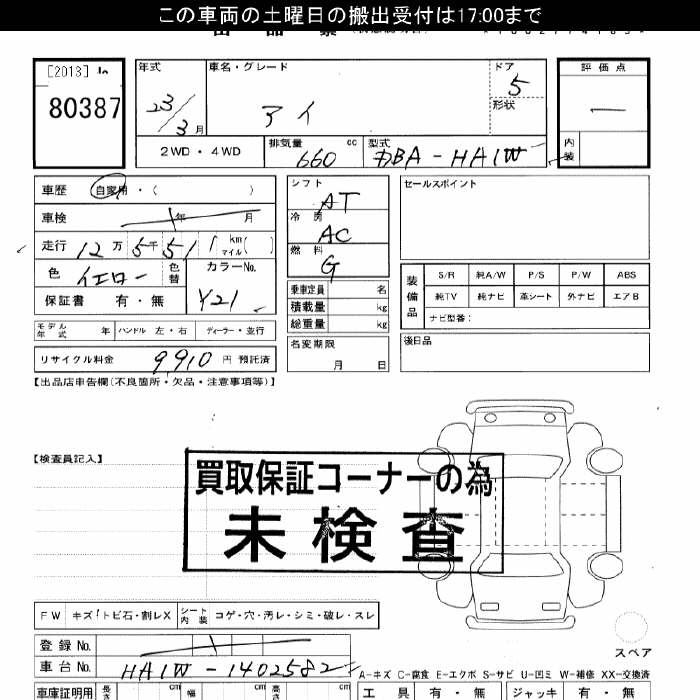 この車両の土曜日の搬出受付は17:00まで
[2013]
80387
年式 車名・グレード ドア 5 評価点
23/3月 アイ 形状 ―
2WD・4WD 排気量 660 cc 型式 DBA-HA1W 内装
車歴 自家用・( )
車検 年 月
走行 12万 5千 51 km マイル ( )
色 イエロー 色替 カラーNo. Y21
保証書 有・無
シフト AT
冷房 AC
燃料 G
乗車定員 名
積載量 kg
総重量 kg
名変期限
月 日
セールスポイント
装備品 S/R 純A/W P/S P/W ABS
純TV 純ナビ 革シート 外ナビ エアB
ナビ型番:
後日品
モデル年式 年 ハンドル 左・右 ディーラー・並行
リサイクル料金 9,910 円 預託済
【出品店申告欄(不良箇所・欠品・注意事項等)】
【検査員記入】
買取保証コーナーの為
未検査
FW キズ!トビ石・割レX シート内装 コゲ・穴・汚レ・シミ・破レ・スレ
登録No.
車台No. HA1W-1402582
スペア
A-キズ C-腐食 E-エクボ S-サビ U-凹ミ W-補修 XX-交換済
車庫証明用 長さ cm 幅 cm 高さ cm 工具 有・無 ジャッキ 有・無